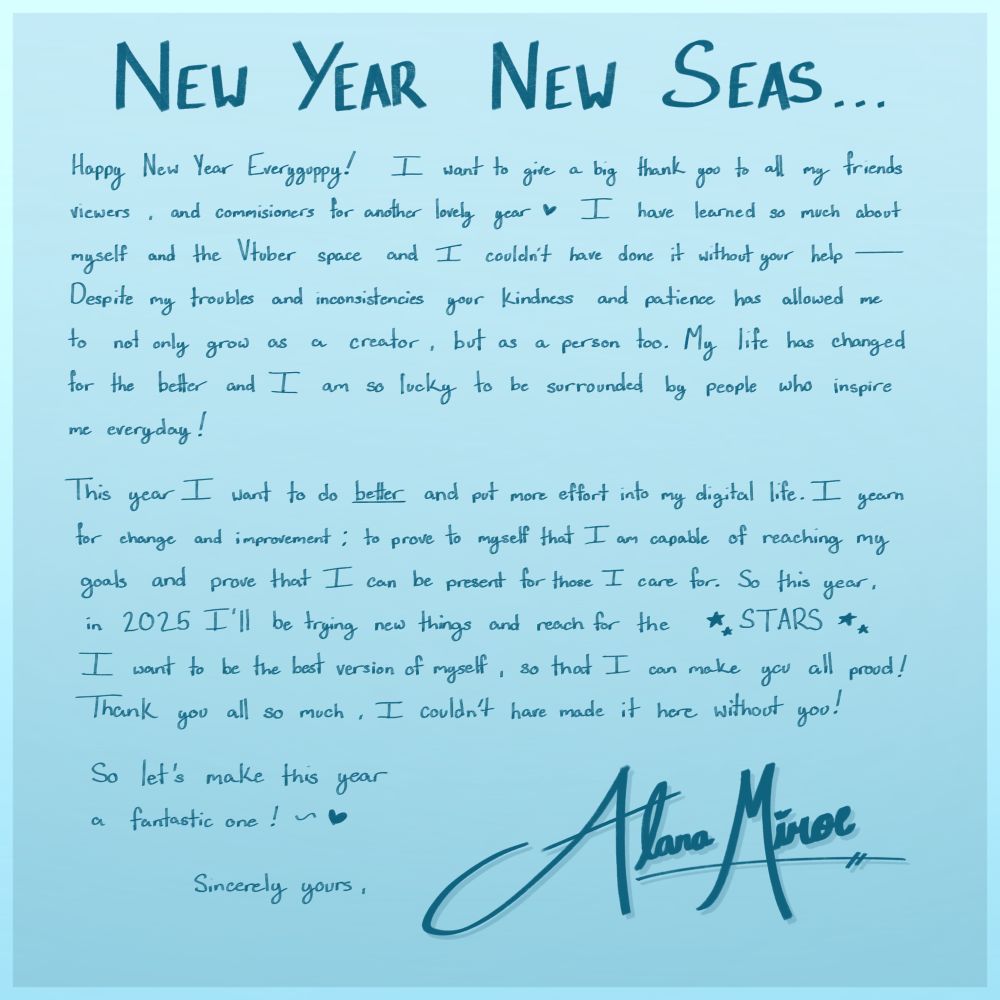 NEW YEAR NEW SEAS...
Happy New Year Everyguppy! I want to give a big thank you to all my friends
viewers, and commisioners for another lovely year ♥ I have learned so much about
myself and the Vtuber space and I couldn't have done it without your help —
Despite my troubles and inconsistencies your kindness and patience has allowed me
to not only grow as a creator, but as a person too. My life has changed
for the better and I am so lucky to be surrounded by people who inspire
me everyday!
This year I want to do better and put more effort into my digital life. I yearn
for change and improvement; to prove to myself that I am capable of reaching my
goals and prove that I can be present for those I care for. So this year,
in 2025 I'll be trying new things and reach for the ★★ STARS ★★
I want to be the best version of myself, so that I can make you all proud!
Thank you all so much, I couldn't have made it here without you!
So let's make this year
a fantastic one! ~ ♥
Sincerely yours,
Alana Miroe